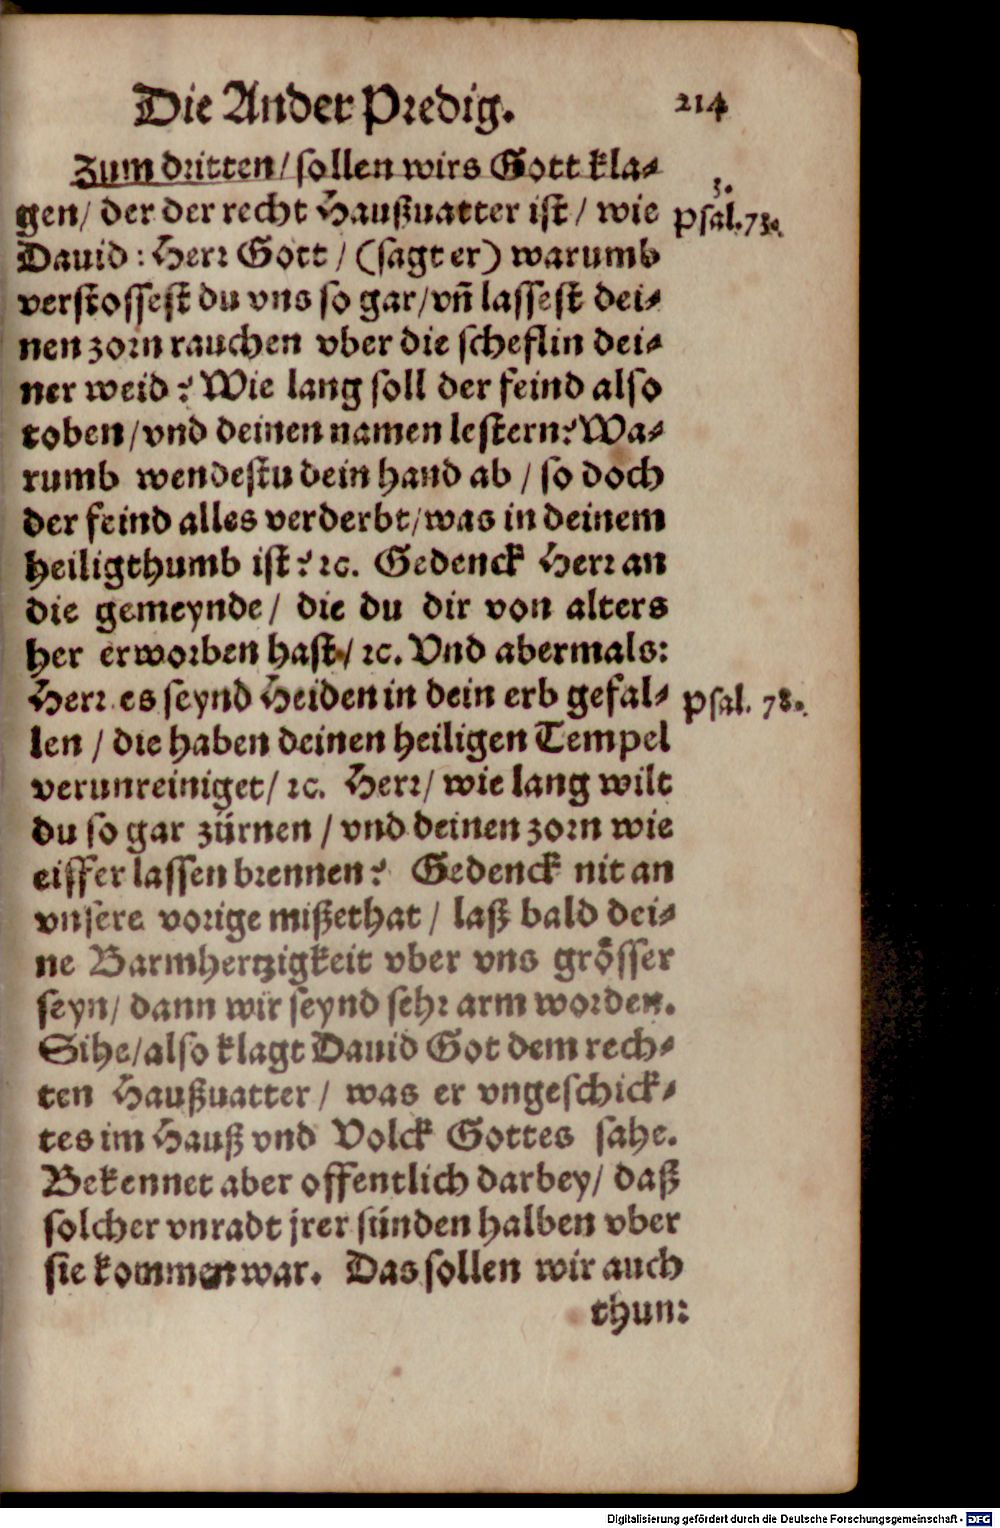 Die Ander Predig. 214
Zum dritten/ sollen wirs Gott kla-
3.
gen/ der der recht Haußuatter ist/ wie
Psal. 73.
Dauid: Herr Gott/ (sagt er) warumb
verstossest du vns so gar/ vñ lassest dei-
nen zorn rauchen vber die scheflin dei-
ner weid? Wie lang soll der feind also
toben/ vnd deinen namen lestern? Wa-
rumb wendestu dein hand ab/ so doch
der feind alles verderbt/ was in deinem
heiligthumb ist? ꝛc. Gedenck Herr an
die gemeynde/ die du dir von alters
her erworben hast/ ꝛc. Vnd abermals:
Herr es seynd Heiden in dein erb gefal-
Psal. 78.
len/ die haben deinen heiligen Tempel
verunreiniget/ ꝛc. Herr/ wie lang wilt
du so gar zürnen/ vnd deinen zorn wie
eiffer lassen brennen? Gedenck nit an
vnsere vorige mißethat/ laß bald dei-
ne Barmhertzigkeit vber vns grösser
seyn/ dann wir seynd sehr arm worden.
Sihe/ also klagt Dauid Got dem rech-
ten Haußuatter/ was er vngeschick-
tes im Hauß vnd Volck Gottes sahe.
Bekennet aber offentlich darbey/ daß
solcher vnradt jrer sünden halben vber
sie kommen war. Das sollen wir auch
thun:
Digitalisierung gefördert durch die Deutsche Forschungsgemeinschaft - DFG